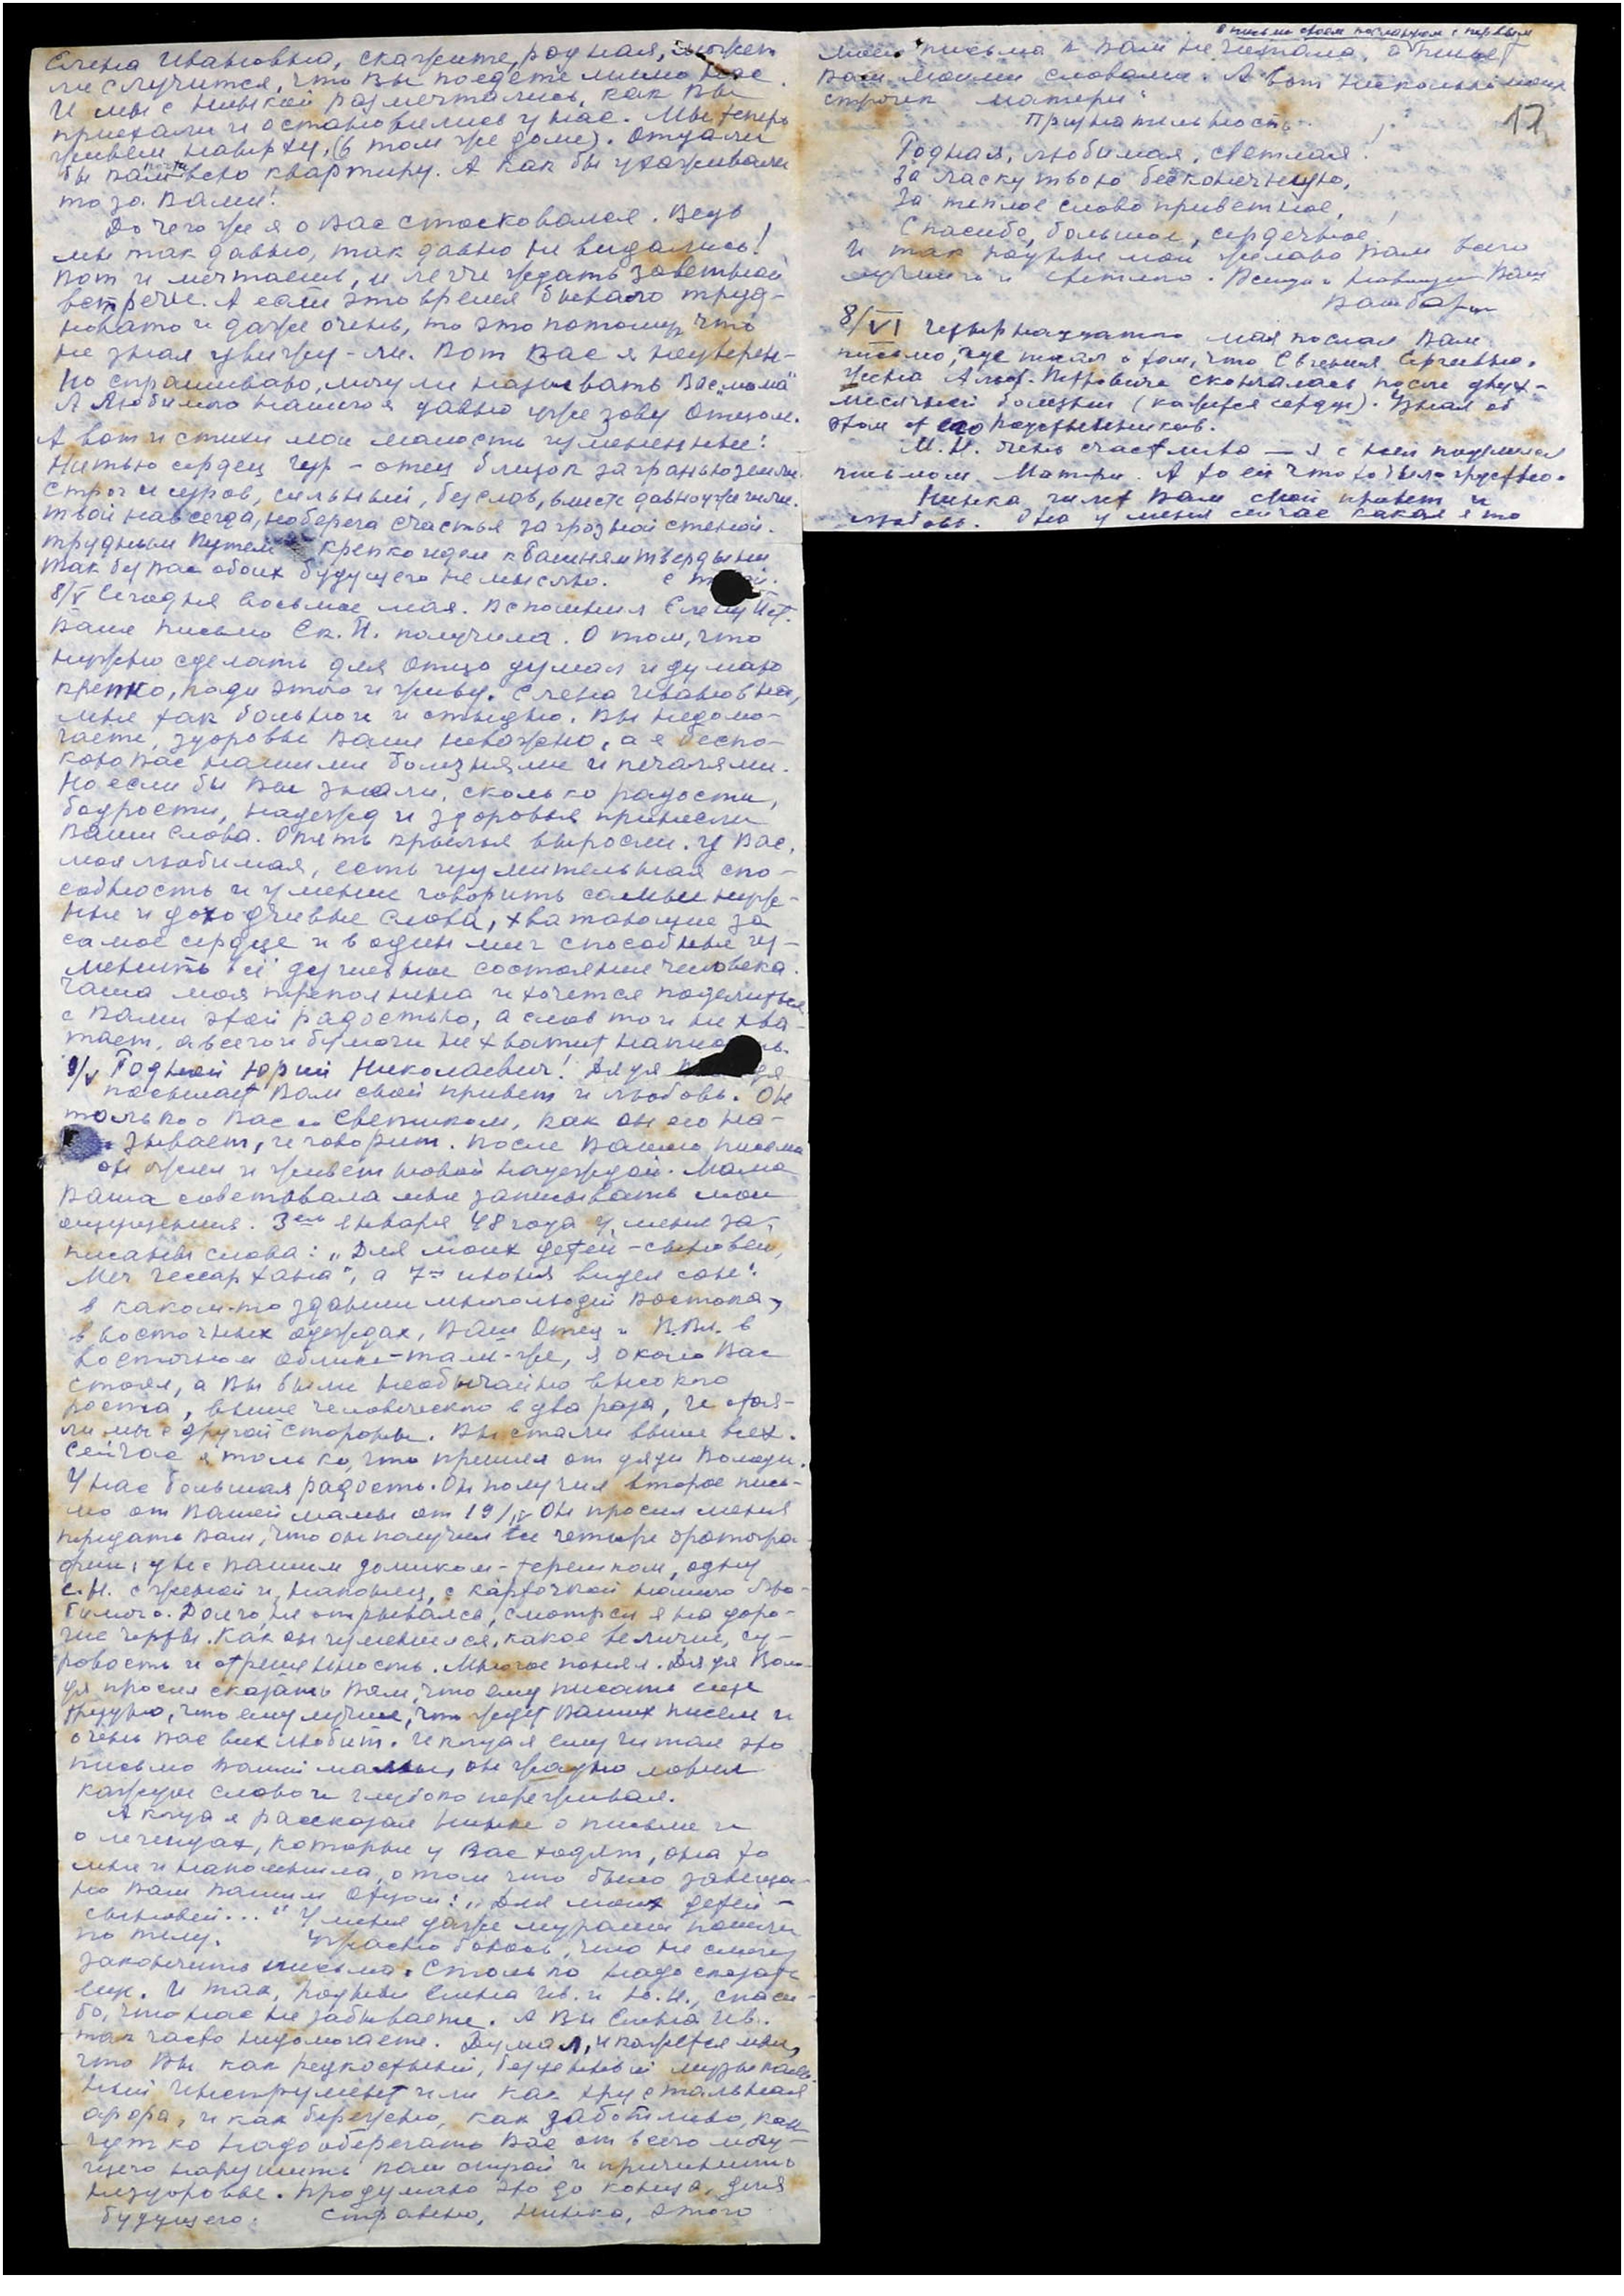 Елена Ивановна, скажите, родная, может
ли случится, что Вы поедете мимо нас
И мы с Нинкой размечтались, как Вы
приехали и остановились у нас. Мы теперь
живем наверху, (в том же доме). Отдали
бы Вам всю квартиру. А как бы ухаживали
то за Вами!
До чего же я о Вас стосковался. Ведь
мы так давно, так давно не видались!
Вот и мечтаешь, и легче ждать заветной
встречи. А если это время бывало труд-
новато и даже очень, то это потому, что
не знал увижу-ли. Вот Вас я неуверен-
но спрашиваю, могу ли называть Вас „мама"
А Любимого нашего я давно уже зову Отцом.
А вот и стихи мои малость измененные:
Нитью сердец Гур - отец близок за гранью земли.
Строг и суров, сильный, без слов, вместе давно уже шли.
твой навсегда, но берега счастья за грозной стеной.
трудным Путем крепко идем к Башням твердыни
так без Вас обоих будущего не мыслю. с
8/V Сегодня восьмое мая. Вспомнил Елену П.
Ваше письмо Ек. П. получила. О том, что
нужно сделать для Отца думал и думаю
крепко, ради этого и живу. Елена Ивановна,
мне так больно и стыдно. Вы недомо-
гаете, здоровье Ваше неважно, а я беспо-
кою Вас нашими болезнями и печалями.
Но если бы Вы знали, сколько радости,
бодрости, надежд и здоровья принесли
Ваши слова. Опять крылья выросли. У Вас,
моя любимая, есть изумительная спо-
собность и умение говорить самые нуж-
ные и доходчивые слова, хватающие за
самое сердце и в один миг способные из-
менить всё душевное состояние человека.
Чаша моя преполнена и хочется поделиться
с Вами этой радостью, а слов то и не хва-
тает, а всего и бумаги не хватит написать.
9/V Родной Юрий Николаевич! Дядя
посылает Вам свой привет и любовь. Он
только о Вас и Светиком, как он его на-
зывает, и говорит. После Вашего письма
он ожил и живет новой надеждой. Мама
Ваша советовала мне записывать мои
ощущения. 3его января 48 года у меня за-
писаны слова: „Для моих детей - сыновей,
Меч Гессар Хана", а 7го июня видел сон:
в каком-то здании много людей Востока,
в восточных одеждах, Ваш Отец и В.Вл. в
восточном облике - там-же, я около Вас
стоял, а Вы были необычайно высокого
роста, выше человеческого в два раза, и стоя-
ли мы с другой стороны. Вы стали выше всех.
Сейчас я только, что пришел от дяди Володи.
У нас большая радость. Он получил второе пись-
мо от Вашей мамы от 19/IV Он просил меня
передать Вам, что он получил все четыре фотогра-
фии, две с Вашим домиком - теремком, одну
С.Н. с женой и, наконец, с карточкой нашего Лю-
бимого. Долго, не отрываясь, смотрел я на доро-
гие черты. Как он изменился, какое величие, су-
ровость и отрешенность. Многое понял. Дядя Воло-
дя просил сказать Вам, что ему писать еще
трудно, что ему лучше, что ждет Ваших писем и
очень Вас всех любит. И когда я ему читал это
письмо Вашей мамы, он жадно ловил
каждое слово и глубоко переживал.
А когда я рассказал Нинке о письме и
о легендах, которые у Вас ходят, она то
мне и напомнила, о том что было завеща-
но Вам Вашим Отцом: „Для моих детей -
сыновей..." У меня даже мурашки пошли
по телу. Ужасно боюсь, что не смогу
закончить письма. Столько надо сказать
еще. И так, родные Елена Ив. и Ю.Н., спаси-
бо, что нас не забываете. А Вы Елена Ив.
так часто недомогаете. Думал, и кажется мне,
что Вы как редкостный, бесценный музыкаль-
ный инструмент или как хрустальная
арфа, и как бережно, как заботливо, как
чутко надо оберегать Вас от всего могу-
щего нарушить Ваш строй и причинить
нездоровье. Продумаю это до конца, для
будущего. Странно, Нинка, этого
в письме своем с первым
моего письма к Вам не читала, а пишет
Вам моими словами. А вот несколько моих
строчек матери:
17
Признательность.
Родная, любимая, светлая!
За ласку твою бесконечную,
За теплое слово приветное,
Спасибо, большое, сердечное!
И так родные мои желаю Вам всего
лучшего и светлого. Всегда Ваш
Ваш Бор
8/VI Четырнадцатого мая послал Вам
письмо, где писал о том, что Евгения Сергеевна,
жена Альф. Петровича скончалась после двух-
месячной болезни (кажется сердце). Узнал об
этом от его родственников.
М.Н. очень счастлива — я с ней поделился
письмом Матери. А то ей что то было грустно.
Нинка шлет Вам свой привет и
любовь. Она у меня сейчас какая то